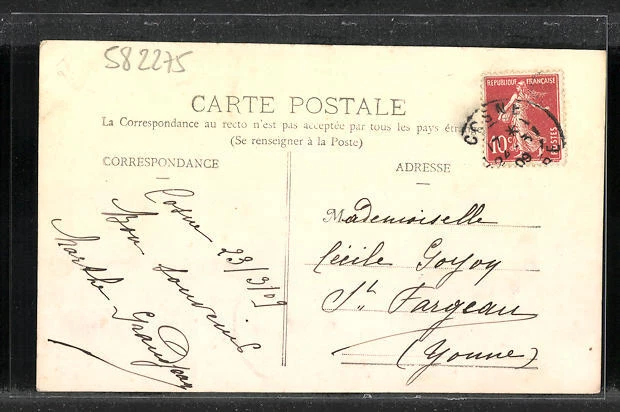 582275
REPUBLIQUE FRANÇAISE
10c POSTES
COSNE
24
09
CARTE POSTALE
La Correspondance au recto n'est pas acceptée par tous les pays étra
(Se renseigner à la Poste)
CORRESPONDANCE
Cosne 23/3/09
Bon Souvenir
Marthe
ADRESSE
Mademoiselle
Cécile Goyoy
St Fargeau
(Yonne)